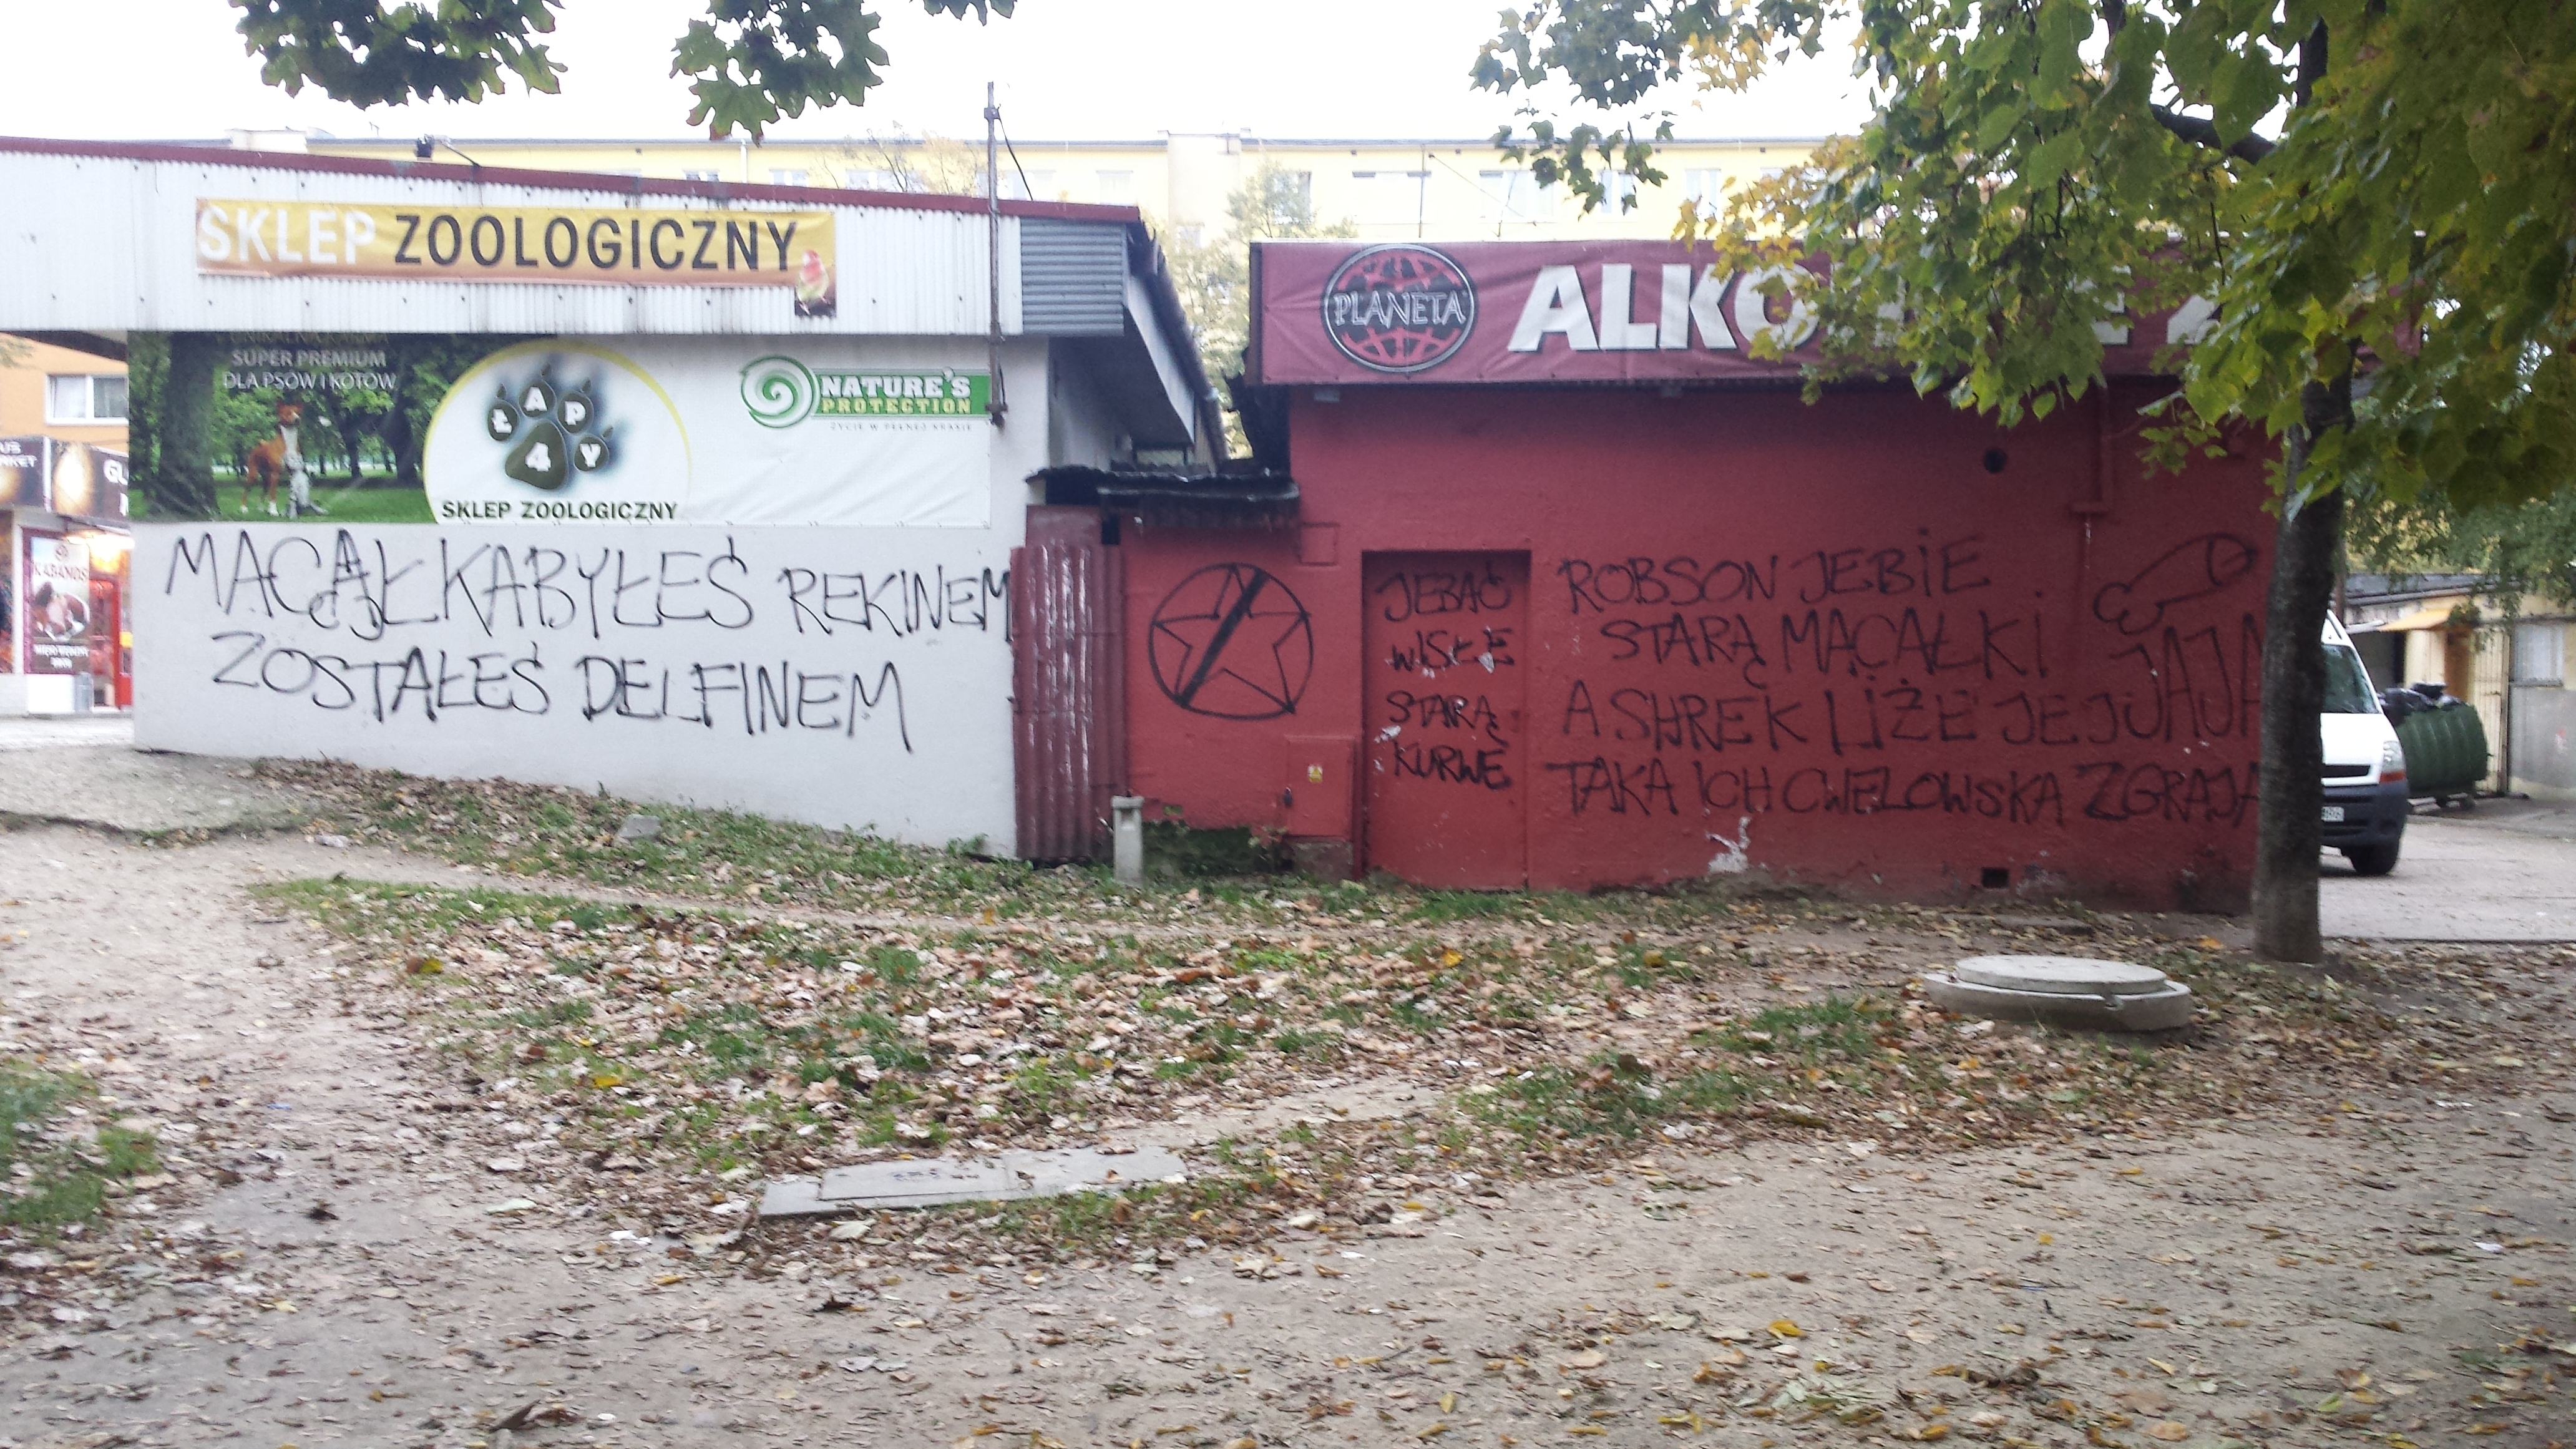 SKLEP ZOOLOGICZNY
SUPER PREMIUM
DLA PSÓW I KOTÓW
ŁAPY
4
SKLEP ZOOLOGICZNY
NATURE'S
PROTECTION
ŻYCIE W PEŁNEJ KRASIE
PLANETA
ALKO
KABANOS
MĄCAŁKA BYŁEŚ REKINEM
ZOSTAŁEŚ DELFINEM
JEBAĆ
WISŁE
STARĄ
KURWE
ROBSON JEBIE
STARĄ MĄCAŁKI
A SHREK LIŻE JEJ JAJA
JAJA
TAKA ICH CWELOWSKA ZGRAJA